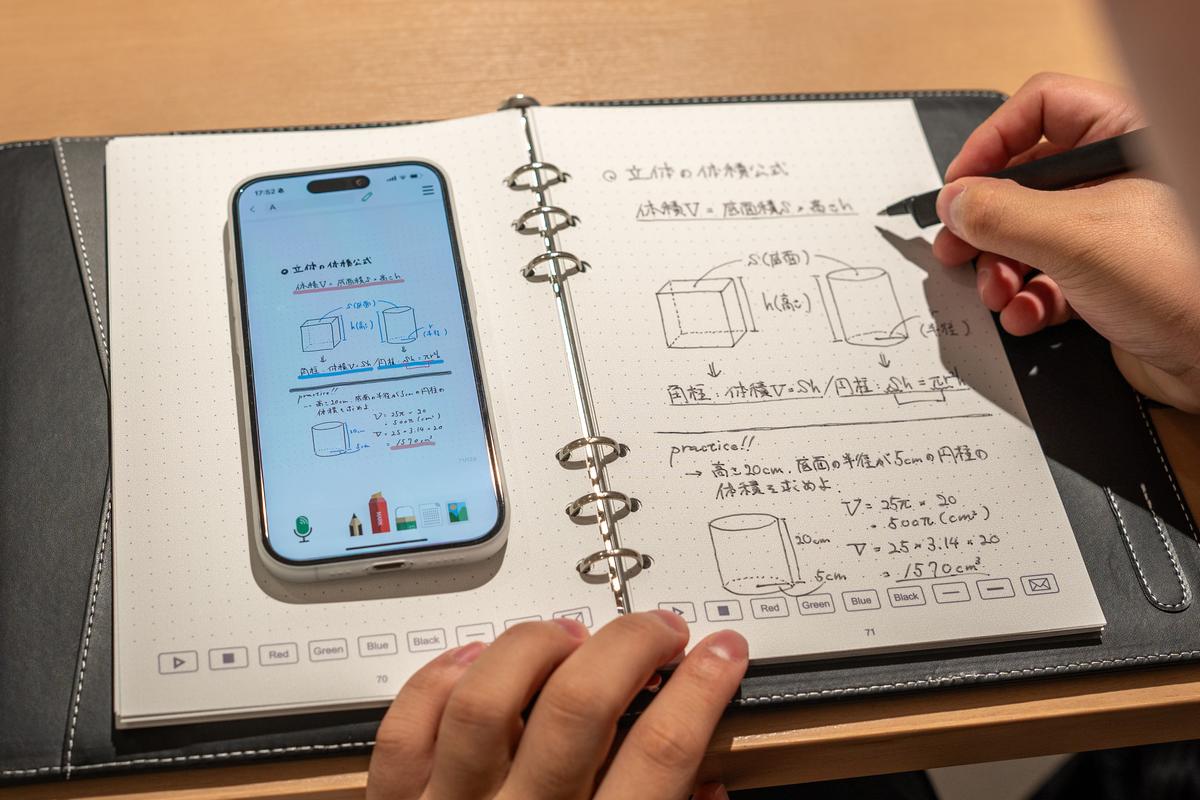 17:52
A
立体の体積公式
体積V = 底面積S × 高さh
S(底面)
h(高さ)
r
(半径)
角柱: 体積V=Sh/円柱: Sh=πr²h
practice!!
→ 高さ20cm、底面の半径が5cmの円柱の
体積を求めよ
V = 25π × 20
= 500π (cm³)
V = 25×3.14×20
= 1570cm³
20cm
5cm
Red Green Blue Black
70
立体の体積公式
体積V = 底面積S × 高さh
S(底面)
h(高さ)
r
(半径)
角柱: 体積V=Sh/円柱: Sh=πr²h
practice!!
→ 高さ20cm、底面の半径が5cmの円柱の
体積を求めよ
V = 25π × 20
= 500π (cm³)
20cm
V = 25×3.14×20
5cm
= 1570cm³
Red Green Blue Black
71